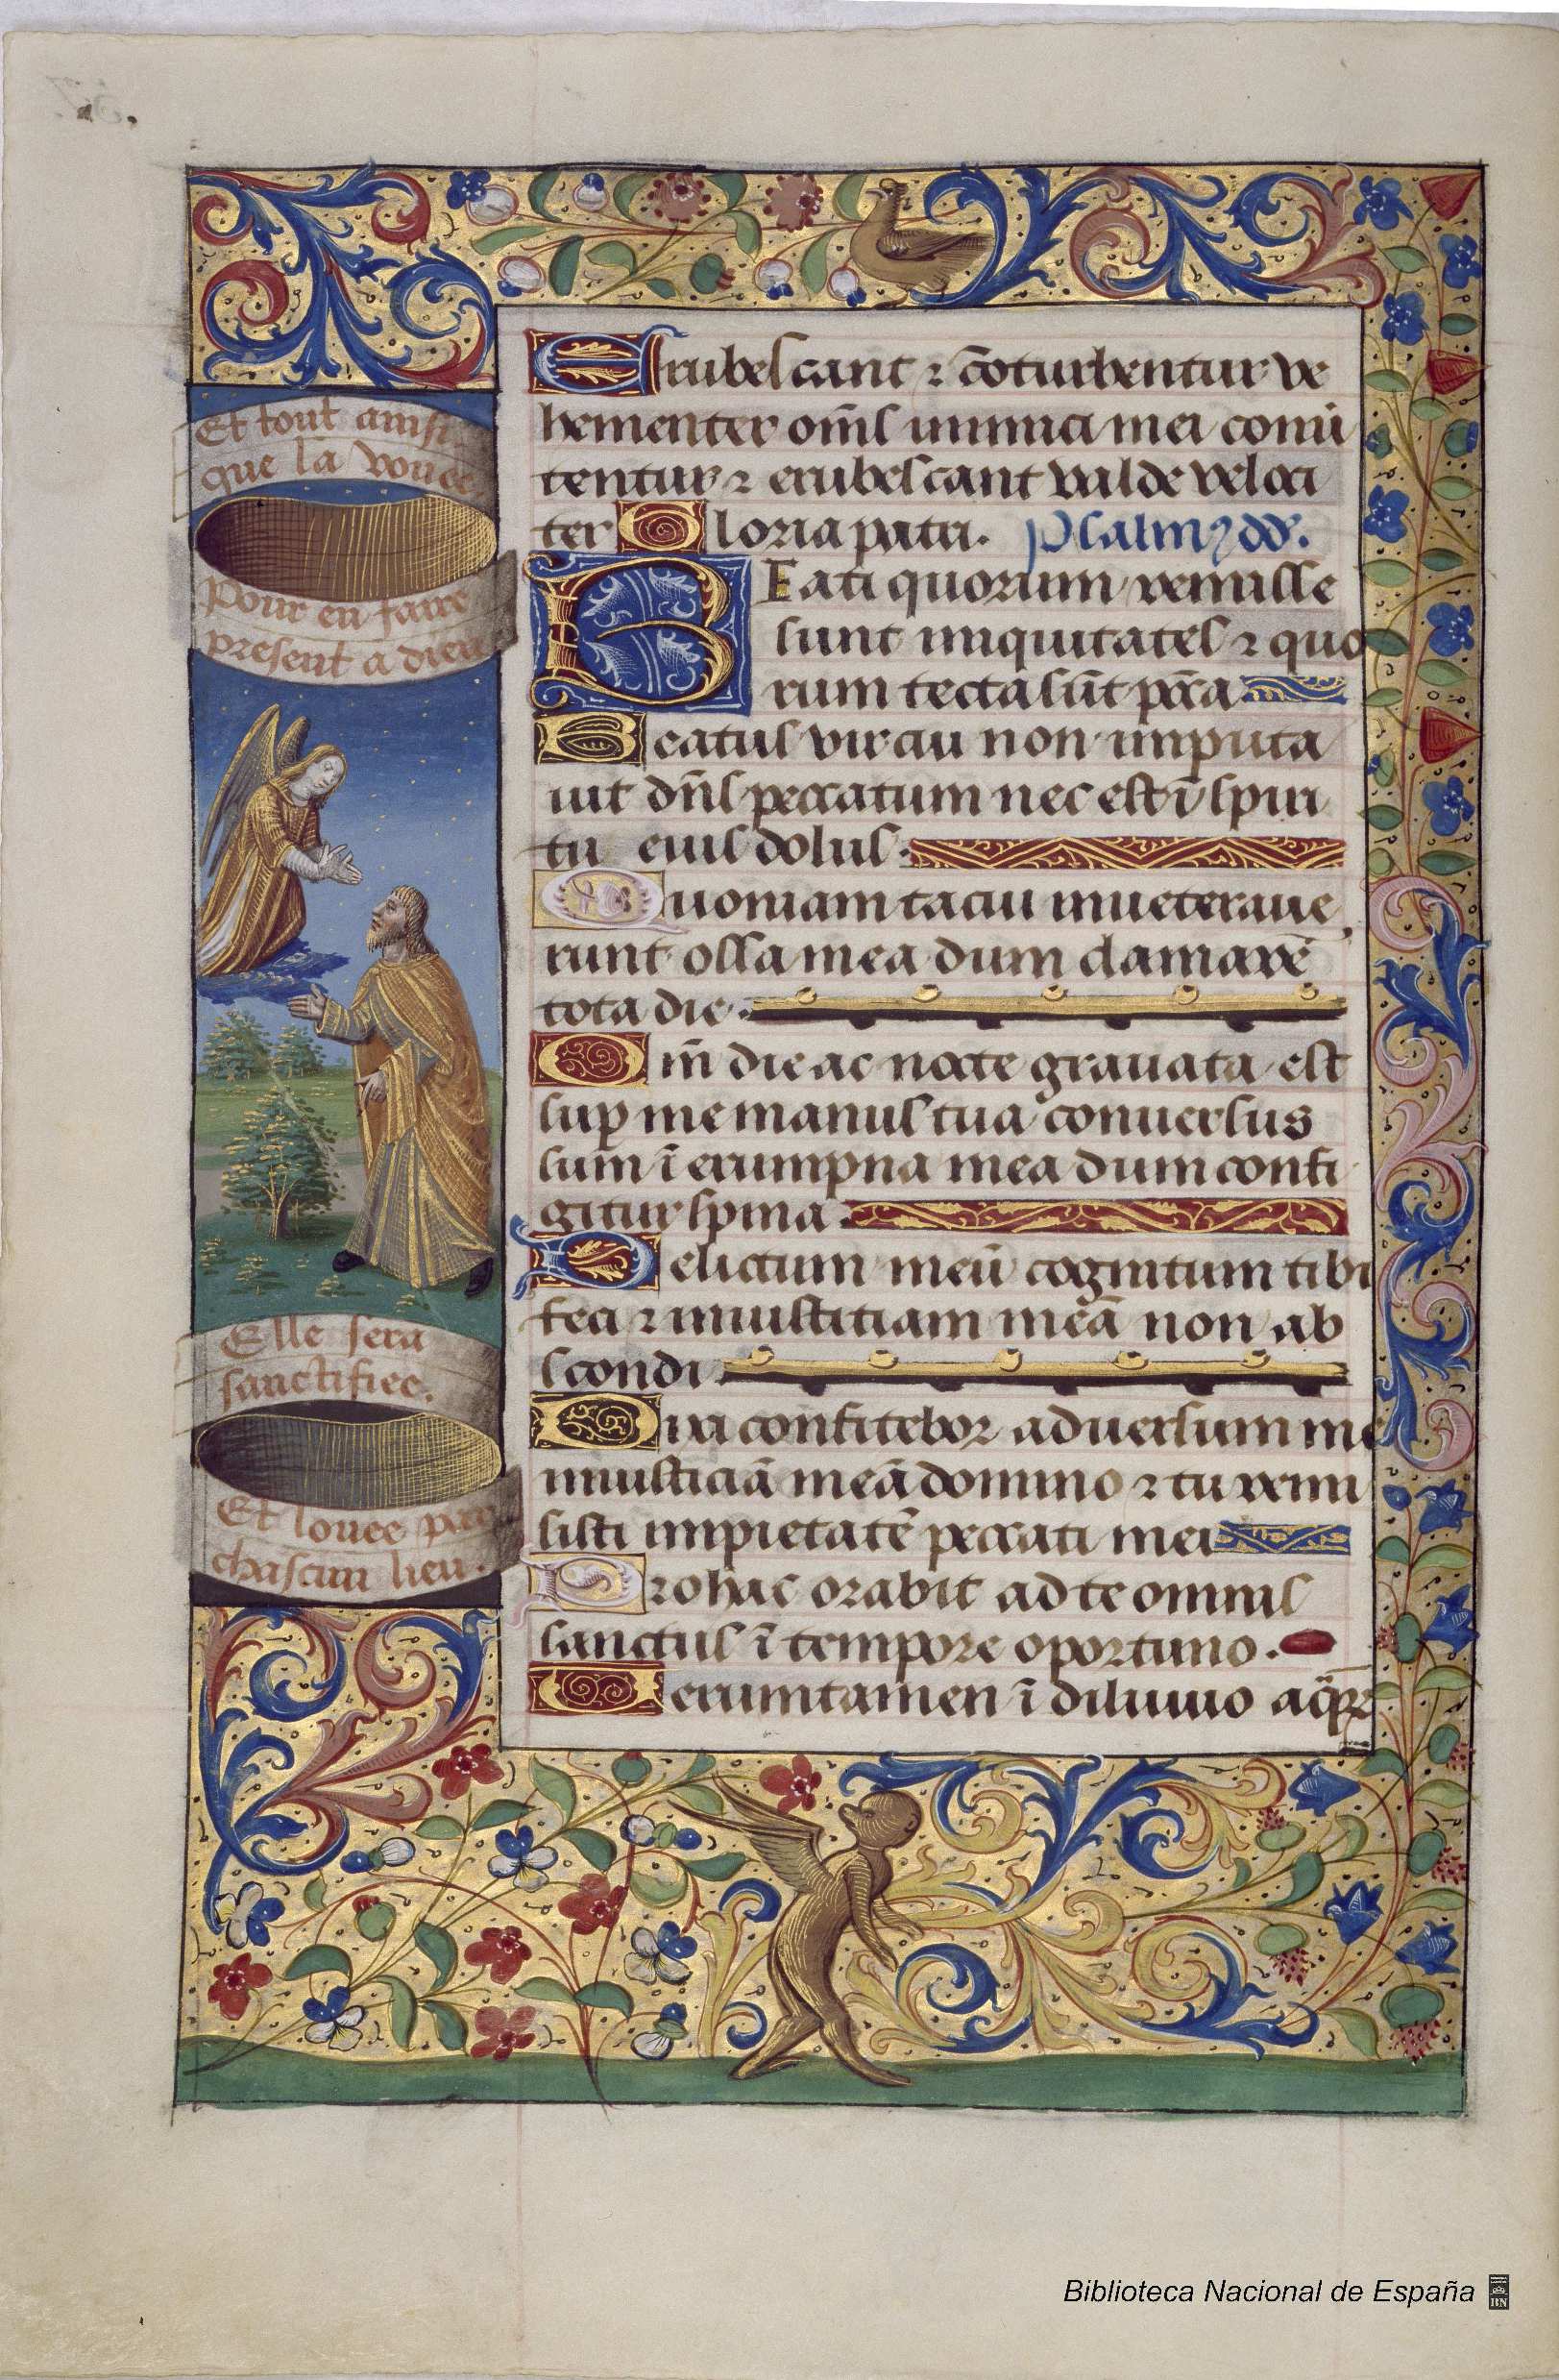 Et tout ainsi
que la vouee
Pour en faire
present a dieu
Elle sera
sanctifiee.
Et louee par
chascun lieu.
Erubescant ⁊ cōturbentur ve
hementer om̄s inimici mei conũ
tentur ⁊ erubescant valde veloci
ter Gloria patri. psalmꝰ dd̄.
BEati quorum remisse
sunt iniquitates ⁊ quo
rum tecta sūt pc̄ca
Beatus vir cui non imputa
uit dn̄s peccatum nec est ī spiri
tu eius dolus.
Quoniam tacui inueteraue
runt ossa mea dum clamarē
tota die.
Qm̄ die ac nocte grauata est
suꝑ me manus tua conuersus
sum ī erumpna mea dum confi
gitur spina.
Delictum meū cognitum tibi
feci ⁊ iniustitiam meā non ab
scondi.
Dixi confitebor aduersum me
iniusticiā meā domino ⁊ tu remi
sisti impietatē peccati mei
Pro hac orabit ad te omnis
sanctus ī tempore oportuno.
Uerumtamen ī diluuio aq̄ꝝ
Biblioteca Nacional de España
BN